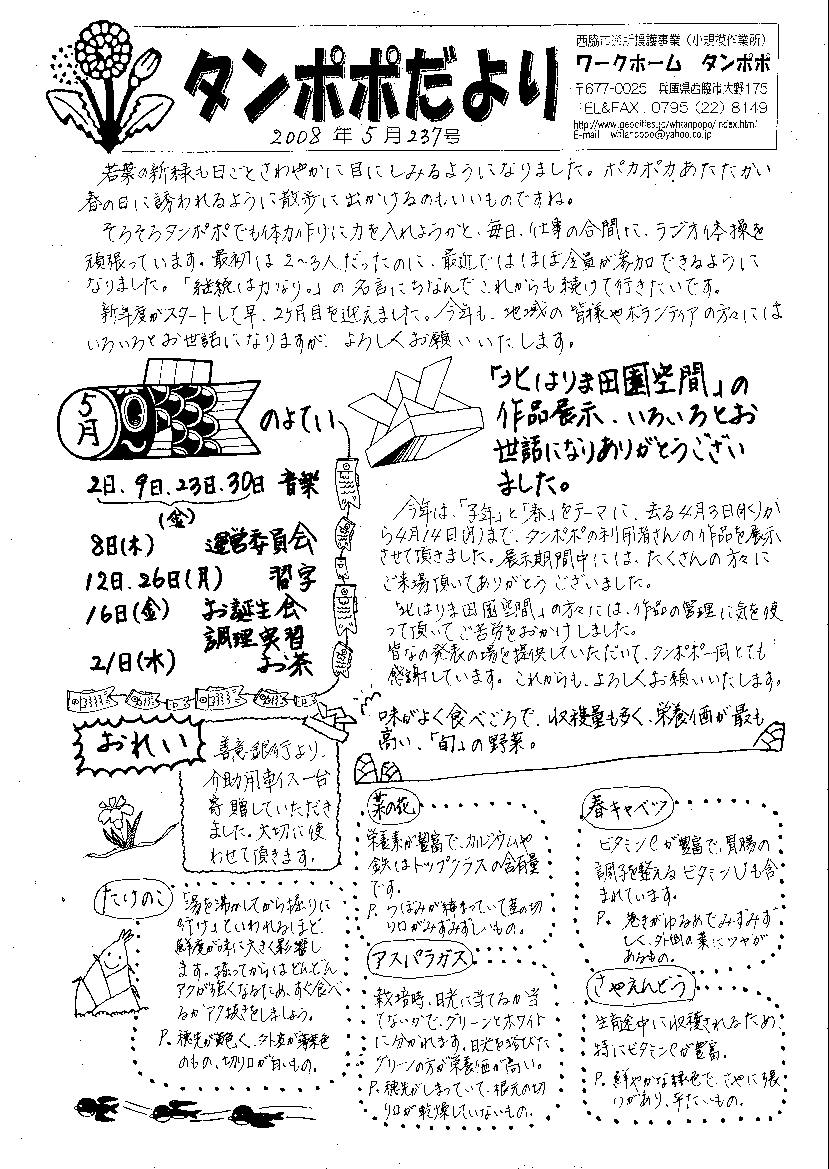 タンポポだより
2008年5月237号
西脇市通所援護事業（小規模作業所）
ワークホーム　タンポポ
〒677-0025　兵庫県西脇市大野175
TEL&FAX　0795（22）8149
http://www.geocities.jp/whtanpopo/index.html
E-mail　whtanpopo@yahoo.co.jp
若葉の新緑も日ごとさわやかに目にしみるようになりました。ポカポカあたたかい
春の日に誘われるように散歩に出かけるのもいいものですね。
そろそろタンポポでも体力作りに力を入れようかと、毎日、仕事の合間に、ラジオ体操を
頑張っています。最初は2〜3人だったのに、最近ではほぼ全員が参加できるように
なりました。「継続は力なり。」の名言にちなんでこれからも続けて行きたいです。
新年度がスタートして早、2ヶ月目を迎えました。今年も、地域の皆様やボランティアの方々には
いろいろとお世話になりますが、よろしくお願いいたします。
5月
のよてい
2日、9日、23日、30日　音楽
(金)
8日(木)　運営委員会
12日、26日(月)　習字
16日(金)　お誕生会
調理実習
21日(水)　お茶
「北はりま田園空間」の
作品展示、いろいろとお
世話になりありがとうござい
ました。
今年は、「子年」と「春」をテーマに、去る4月3日(木)か
ら4月14日(月)まで、タンポポの利用者さんの作品を展示
させて頂きました。展示期間中には、たくさんの方々に
ご来場頂いてありがとうございました。
「北はりま田園空間」の方々には、作品の管理に気を使
って頂いてご苦労をおかけしました。
皆なの発表の場を提供していただいて、タンポポ一同とても
感謝しています。これからも、よろしくお願いいたします。
おれい
善意銀行より、
介助用車イス一台
寄贈していただき
ました。大切に使
わせて頂きます。
味がよく食べごろで、収穫量も多く、栄養価が最も
高い、「旬」の野菜。
たけのこ
「湯を沸かしてから掘りに
行け」といわれるほど、
鮮度が味に大きく影響し
ます。掘ってからはどんどん
アクが強くなるため、すぐ食べ
るかアク抜きをしましょう。
P. 穂先が黄色く、外皮が薄茶色
のもの、切り口が白いもの。
菜の花
栄養素が豊富で、カルシウムや
鉄はトップクラスの含有量
です。
P. つぼみが締まっていて茎の切
り口がみずみずしいもの。
アスパラガス
栽培時、日光に当てるか当
てないかで、グリーンとホワイト
に分かれます。日光を浴びた
グリーンの方が栄養価が高い。
P. 穂先がしまっていて、根元の切
り口が乾燥していないもの。
春キャベツ
ビタミンCが豊富で、胃腸の
調子を整えるビタミンUも含
まれています。
P. 巻きがゆるめでみずみず
しく、外側の葉にツヤが
あるもの。
さやえんどう
生育途中に収穫されるため
特にビタミンCが豊富。
P. 鮮やかな緑色で、さやに張
りがあり、平たいもの。